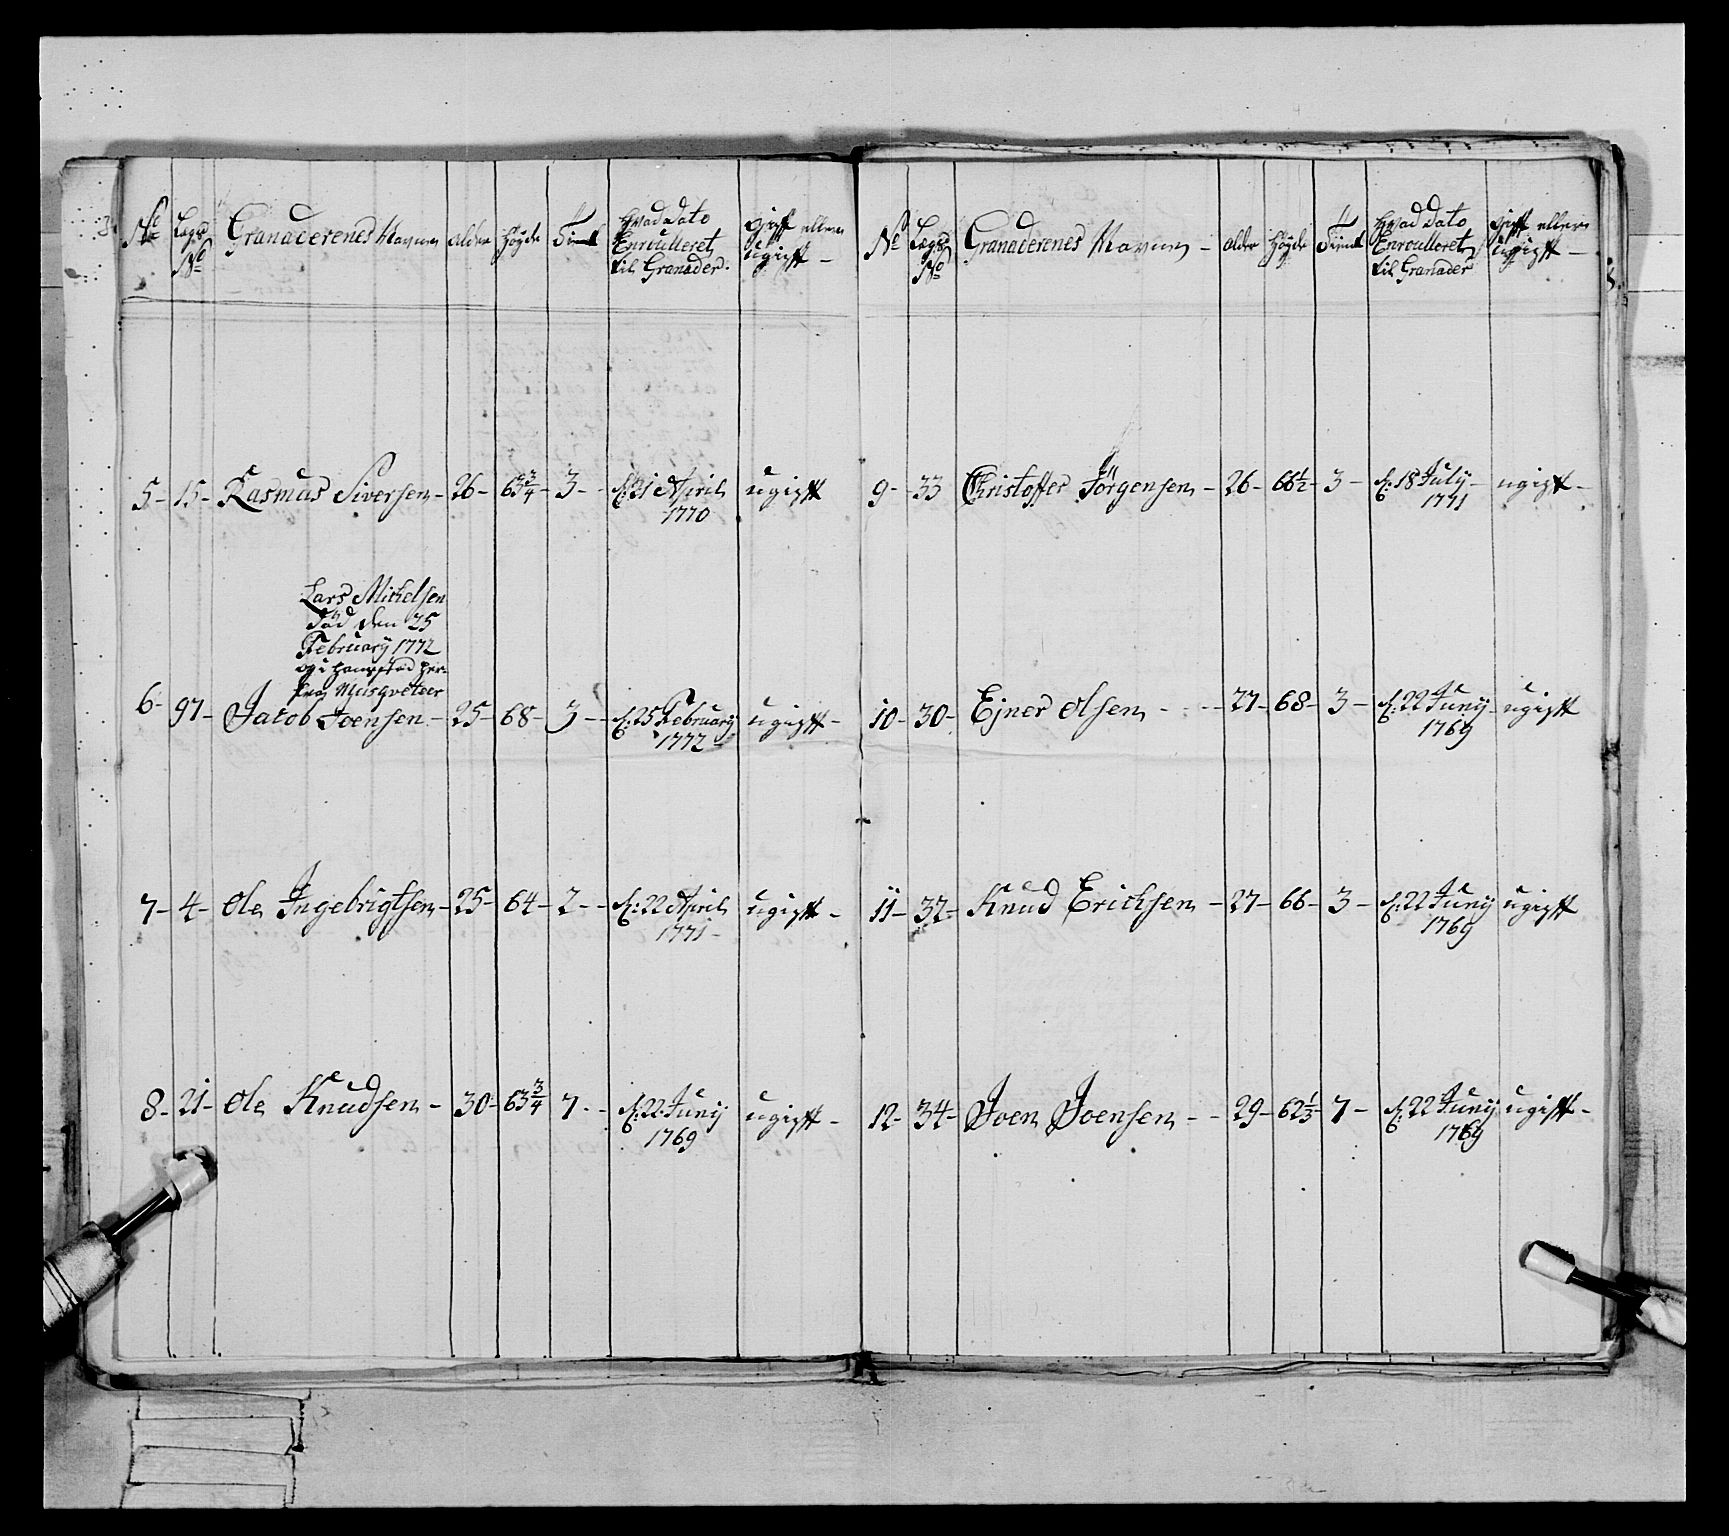 No Lægs No Granaderenes Navne alder höyde Tient Hvad dato Enroulleret til Granader. Gift eller ugift -
5- 15- Rasmus Siversen - 26- 63 3/4 - 3 - d: 21 April 1770 ugift
Lars Michelsen
död den 25
February 1772
og i hans sted
fra Musqveteer
6- 97- Jacob Joensen - 25- 68- 3 - d: 25 February 1772 ugift -
7- 4- Ole Ingebrigtsen - 25- 64- 2 - d: 22 April 1771 - ugift -
8- 21- Ole Knudsen - 30- 63 3/4 7 - d: 22 Juny 1769 ugift -
No Lægs No Granaderenes Navne - alder höyde Tient Hvad dato Enroulleret til Granader Gift eller ugift -
9- 33 Christoffer Jörgensen - 26- 66 1/2 - 3 - d: 18 July - 1771 ugift -
10- 30- Ejner Olsen - 27- 68- 3 - d: 22 Juny - 1769 ugift
11- 32- Knud Erichsen - 27- 66- 3 - d: 22 Juny 1769 ugift
12- 34- Joen Joensen - 29- 62 1/3 - 7 - d: 22 Juny 1769 ugift -